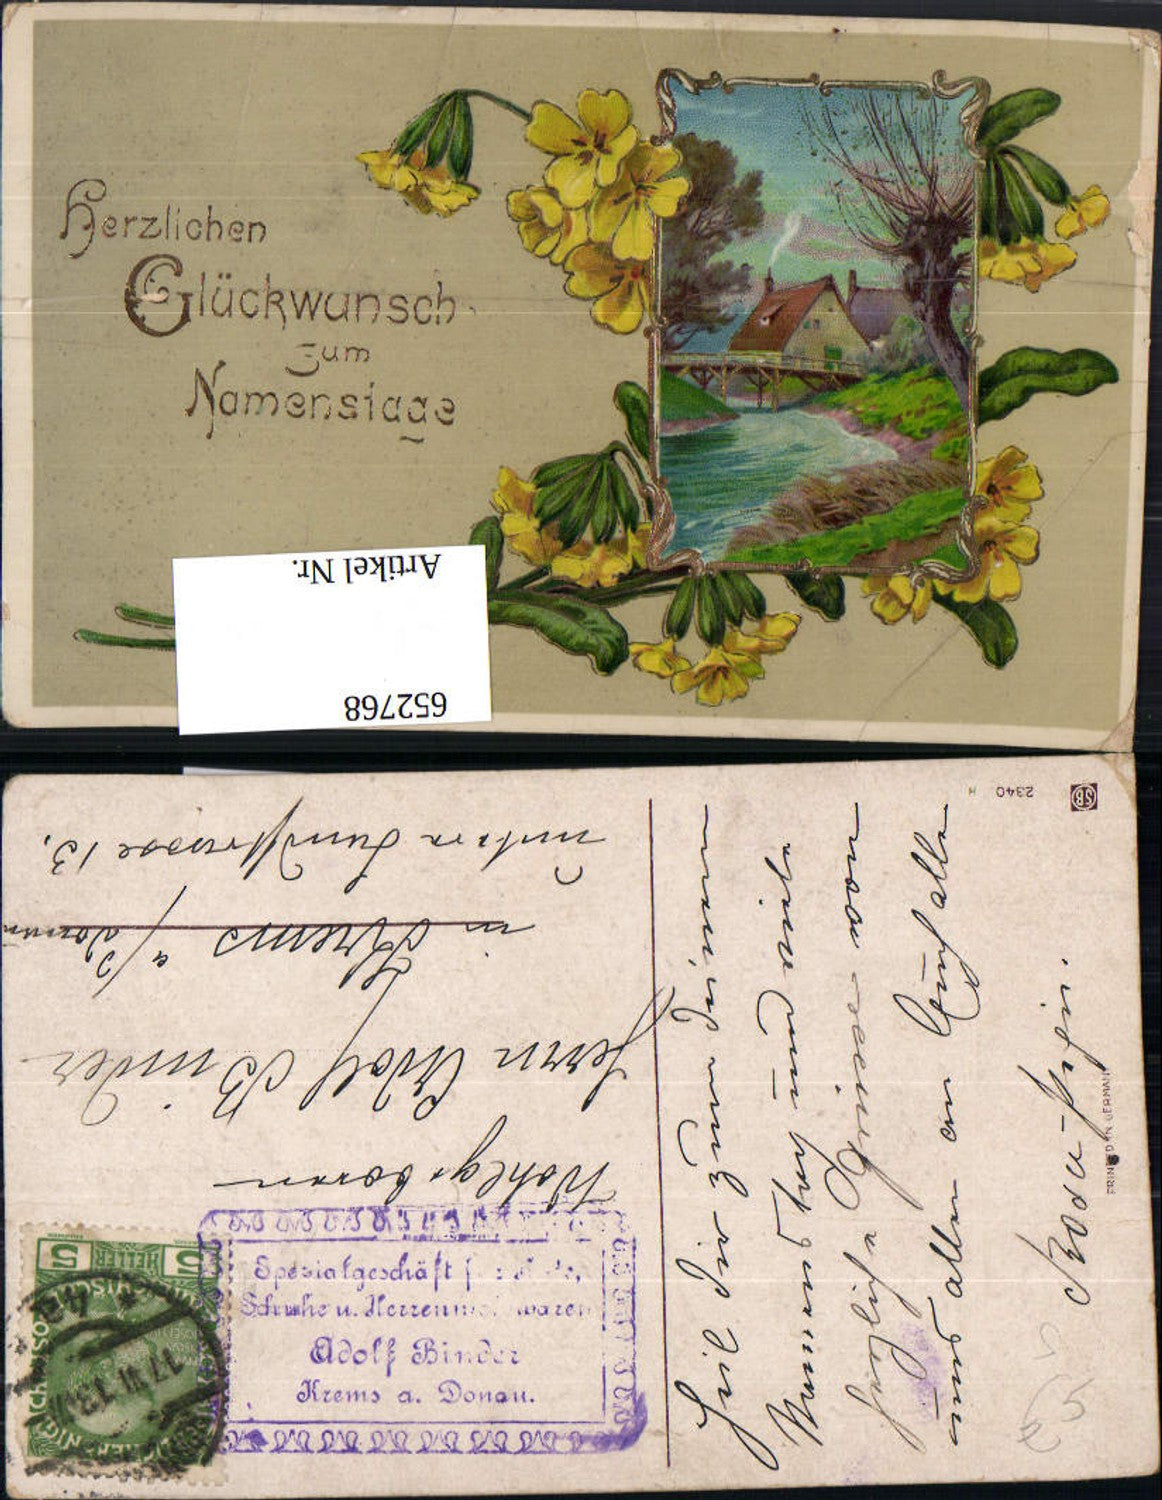 Herzlichen
Glückwunsch
zum
Namenstage
Artikel Nr.
652768
2340 H
SB
Wohlgeboren
Herrn Adolf Binder
in Krems a/Donau
untere Landstrasse 13.
5 HELLER 5
17 VI 13
Spezialgeschäft
Schuhe u. Herren waren
Adolf Binder
Krems a. Donau.
Heil Dir zum Deinem
Namenstag und viele
herzliche Grüsse von
uns allen an Euch alle
PRINTED IN GERMANY